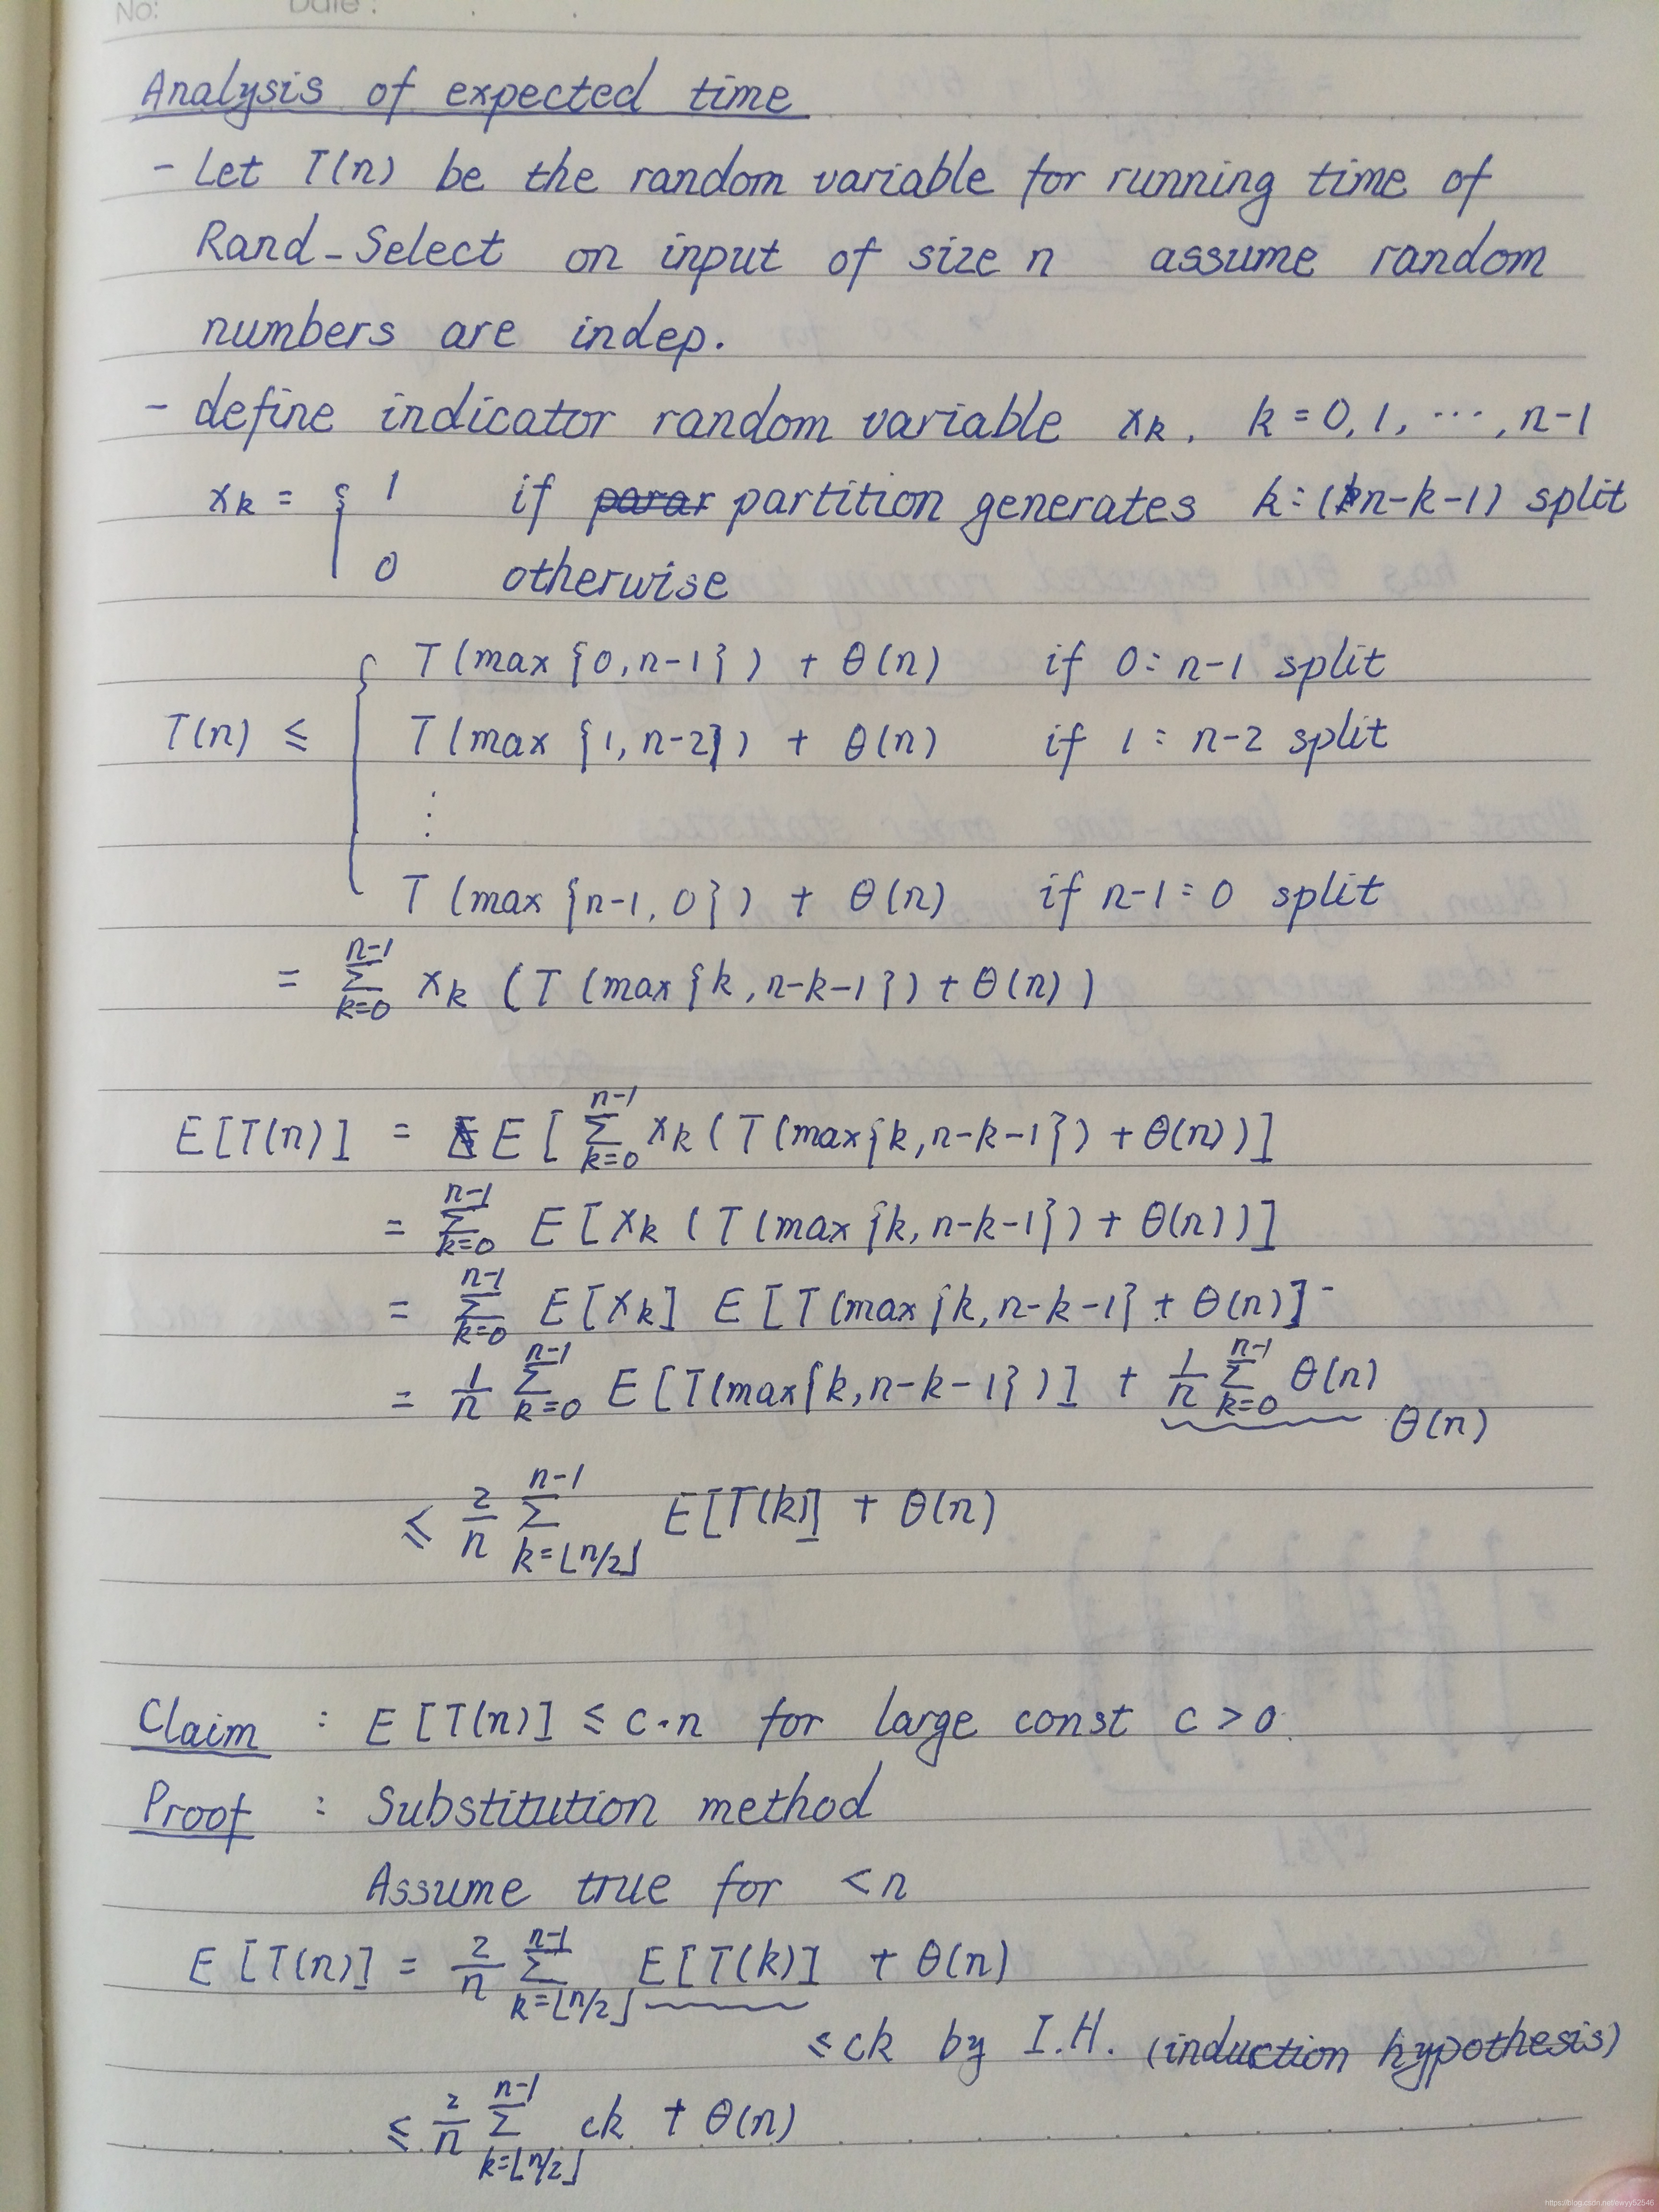 No: Date:
Analysis of expected time
- Let T(n) be the random variable for running time of
Rand-Select on input of size n assume random
numbers are indep.
- define indicator random variable xk, k = 0, 1, ⋯, n-1
xk = { 1 if partition generates k:(n-k-1) split
0 otherwise
T(max{0, n-1}) + θ(n) if 0:n-1 split
T(n) ≤ { T(max{1, n-2}) + θ(n) if 1:n-2 split
⋮
T(max{n-1, 0}) + θ(n) if n-1:0 split
= ∑_{k=0}^{n-1} xk (T(max{k, n-k-1}) + θ(n))
E[T(n)] = E[∑_{k=0}^{n-1} xk (T(max{k, n-k-1}) + θ(n))]
= ∑_{k=0}^{n-1} E[xk (T(max{k, n-k-1}) + θ(n))]
= ∑_{k=0}^{n-1} E[xk] E[T(max{k, n-k-1} + θ(n)]
= 1/n ∑_{k=0}^{n-1} E[T(max{k, n-k-1})] + 1/n ∑_{k=0}^{n-1} θ(n)
θ(n)
≤ 2/n ∑_{k=⌊n/2⌋}^{n-1} E[T(k)] + θ(n)
Claim : E[T(n)] ≤ c·n for large const c > 0.
Proof : Substitution method
Assume true for < n
E[T(n)] = 2/n ∑_{k=⌊n/2⌋}^{n-1} E[T(k)] + θ(n)
≤ ck by I.H. (induction hypothesis)
≤ 2/n ∑_{k=⌊n/2⌋}^{n-1} ck + θ(n)